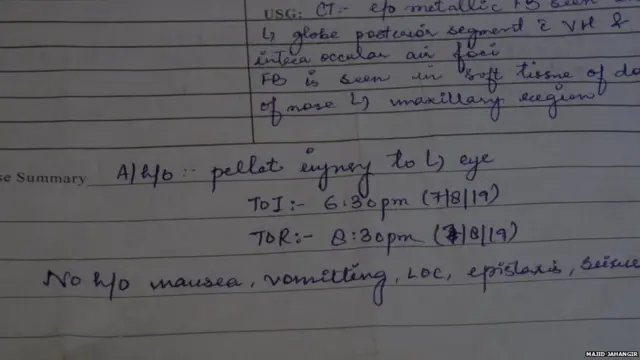 USG: CT:- e/o metallic FB seen
L) globe posterior segment c̄ VH &
intra occular air foci
FB is seen in soft tissue of do
of nose L) maxillary region
se Summary A/h/o :- pellet injury to L) eye
TOI:- 6:30pm (7/8/19)
TOR:- 8:30pm (7/8/19)
No h/o nausea, vomitting, LOC, epistaxis, seisure
MAJID JAHANGIR